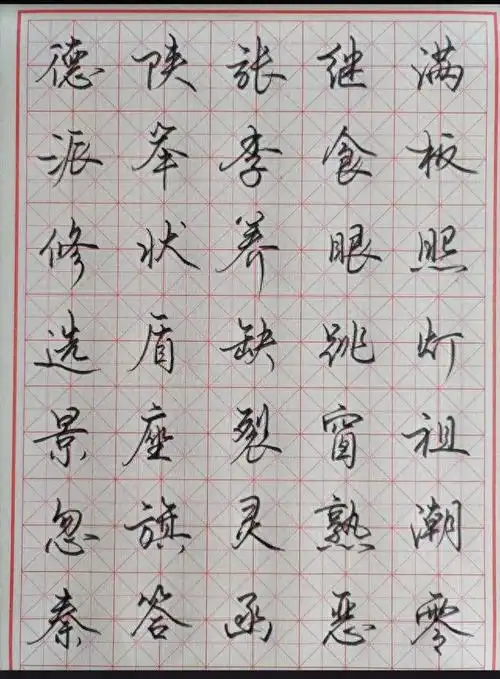 德陕張继满
派举李食板
修状养眼照
选盾缺跳灯
景座裂窗祖
忽旗灵熟潮
秦答函恶零